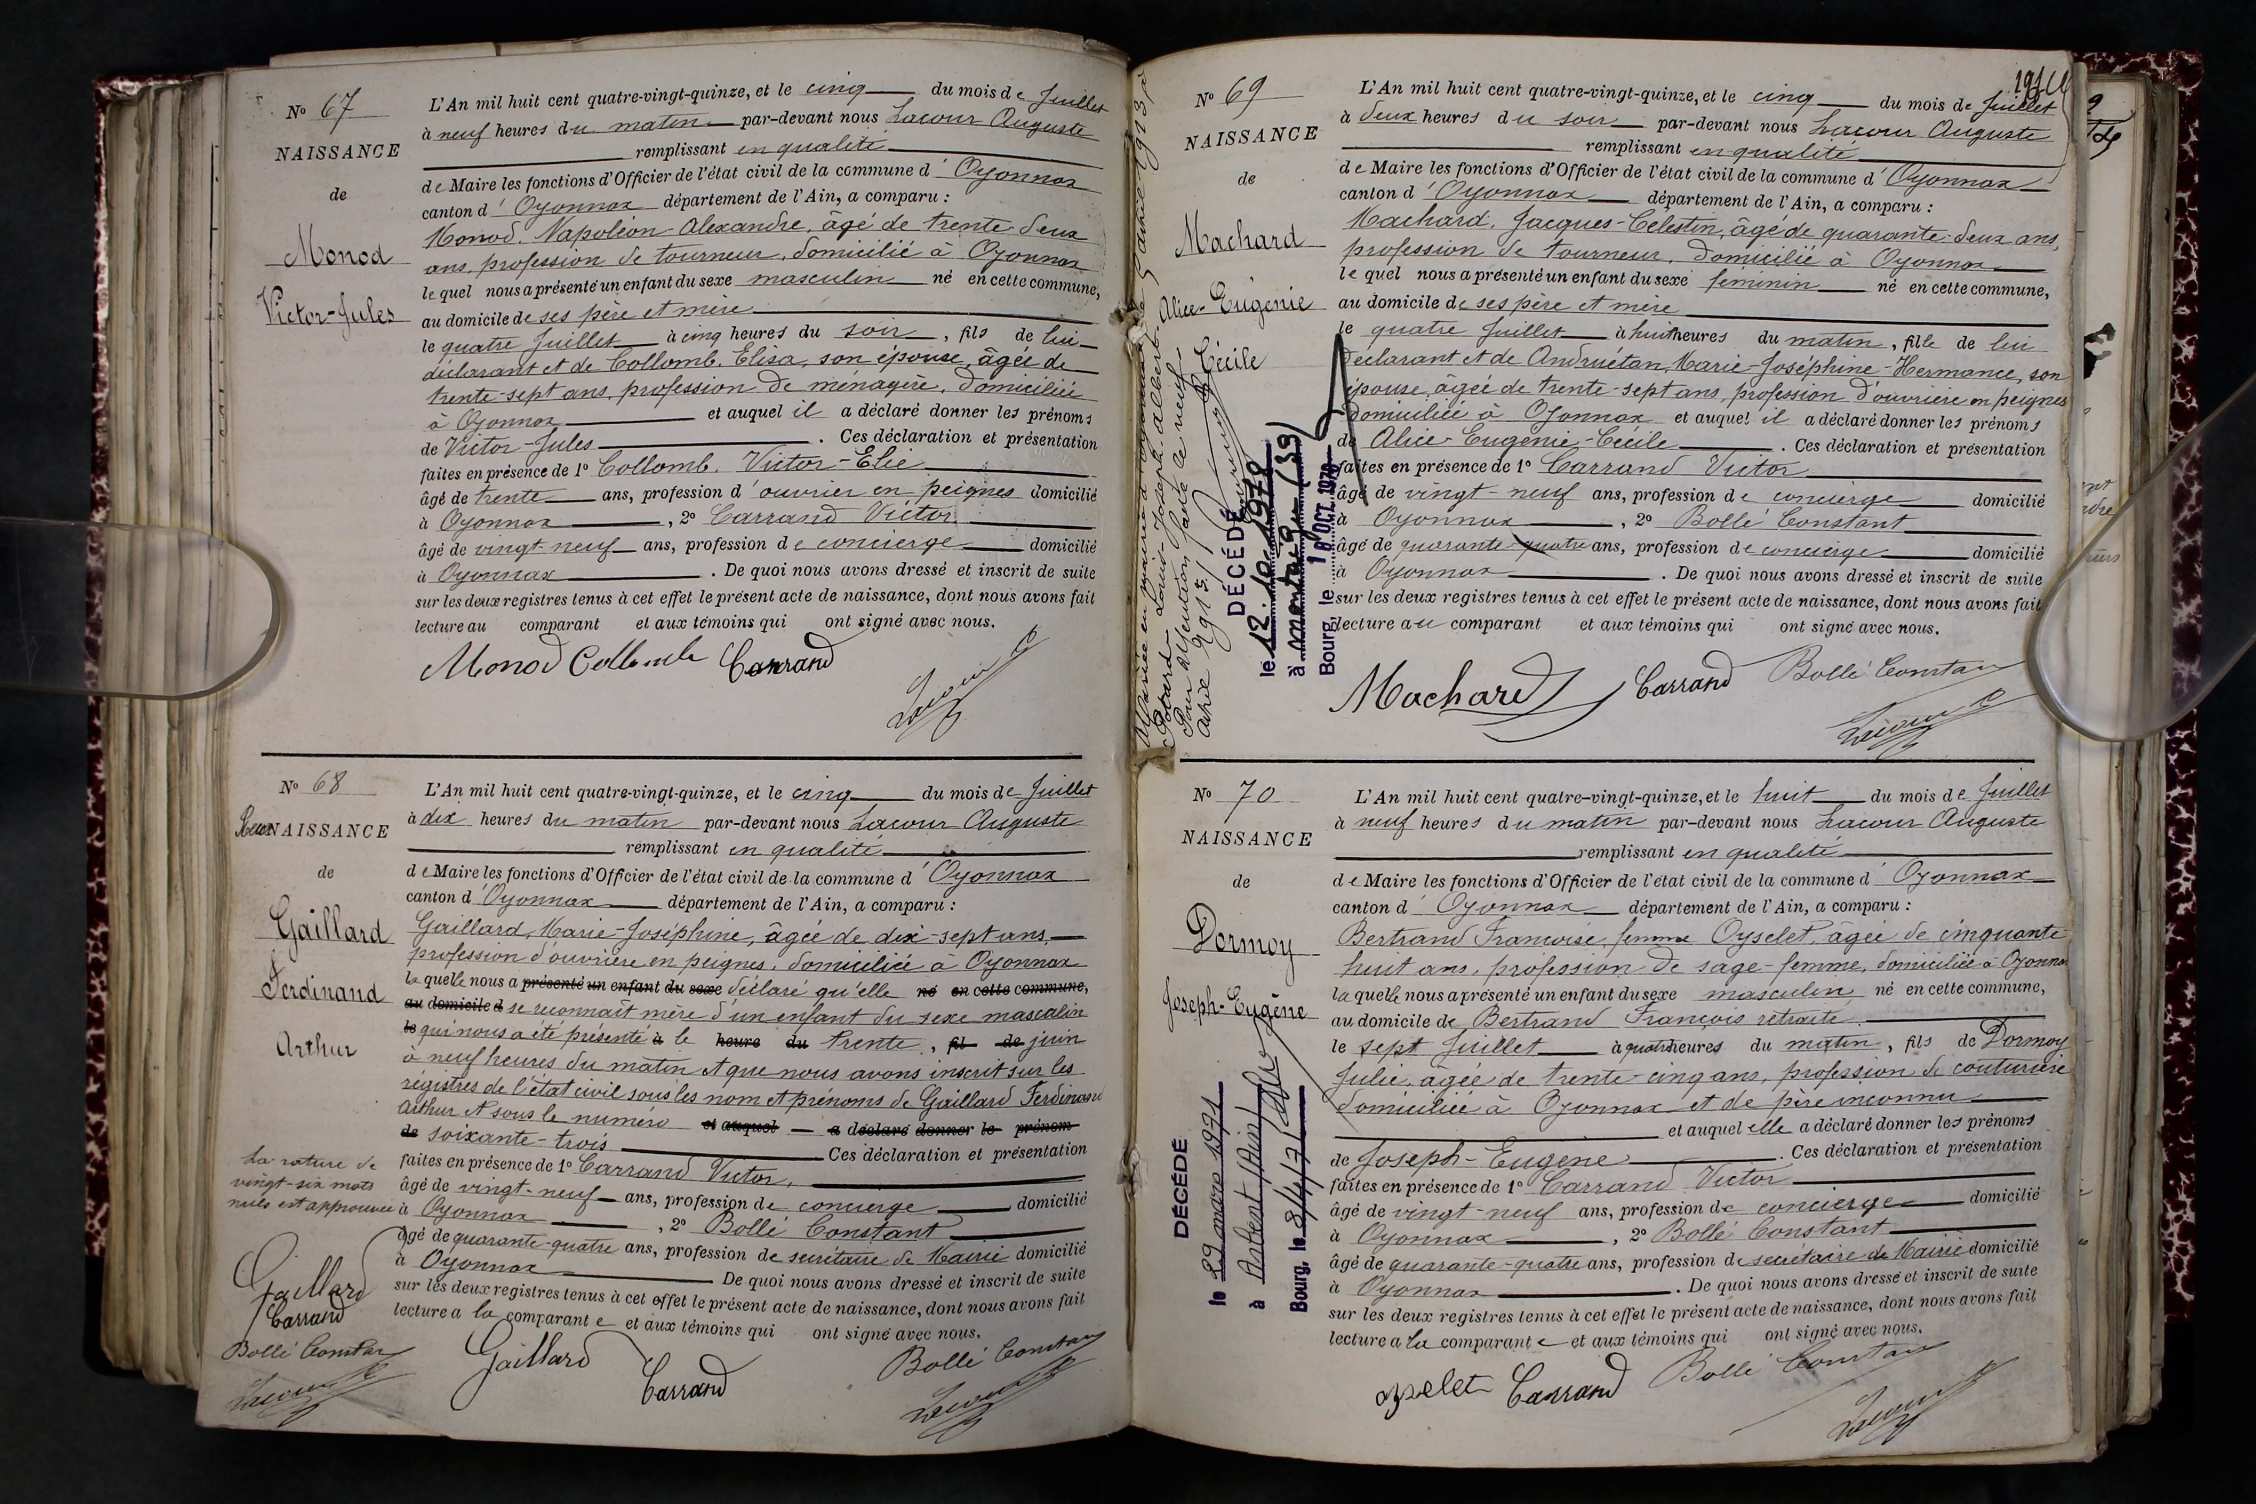 No 67
NAISSANCE
de
Monod
Victor-Jules
L'An mil huit cent quatre-vingt-quinze, et le cinq du mois de Juillet
à neuf heures du matin par-devant nous Lacour Auguste
remplissant en qualité
de Maire les fonctions d'Officier de l'état civil de la commune d' Oyonnax
canton d' Oyonnax département de l'Ain, a comparu :
Monod, Napoléon-Alexandre, âgé de trente-deux
ans, profession de tourneur, domicilié à Oyonnax
lequel nous a présenté un enfant du sexe masculin né en cette commune,
au domicile de ses père et mère
le quatre Juillet à cinq heures du soir, fils de lui-
déclarant et de Collomb, Elisa, son épouse, âgée de
trente-sept ans, profession de ménagère, domiciliée
à Oyonnax et auquel il a déclaré donner les prénoms
de Victor-Jules. Ces déclaration et présentation
faites en présence de 1° Collomb, Victor-Elie
âgé de trente ans, profession d'ouvrier en peignes domicilié
à Oyonnax, 2° Carrand Victor
âgé de vingt-neuf ans, profession de concierge domicilié
à Oyonnax. De quoi nous avons dressé et inscrit de suite
sur les deux registres tenus à cet effet le présent acte de naissance, dont nous avons fait
lecture au comparant et aux témoins qui ont signé avec nous.
Monod Collomb Carrand
Lacour
No 68
Recon NAISSANCE
de
Gaillard
Ferdinand
Arthur
L'An mil huit cent quatre-vingt-quinze, et le cinq du mois de Juillet
à dix heures du matin par-devant nous Lacour Auguste
remplissant en qualité
de Maire les fonctions d'Officier de l'état civil de la commune d' Oyonnax
canton d' Oyonnax département de l'Ain, a comparu :
Gaillard, Marie-Joséphine, âgée de dix-sept ans,
profession d'ouvrière en peignes, domiciliée à Oyonnax
laquelle nous a présenté un enfant du sexe déclaré qu'elle né en cette commune,
au domicile d se reconnaît mère d'un enfant du sexe masculin
le qui nous a été présenté à le heure du trente, fil de juin
à neuf heures du matin et que nous avons inscrit sur les
régistres de l'état civil sous les nom et prénoms de Gaillard Ferdinand
Arthur et sous le numéro et auquel a déclaré donner le prénom
de soixante-trois Ces déclaration et présentation
faites en présence de 1° Carrand Victor,
âgé de vingt-neuf ans, profession de concierge domicilié
à Oyonnax, 2° Bollé Constant
âgé de quarante-quatre ans, profession de secrétaire de Mairie domicilié
à Oyonnax De quoi nous avons dressé et inscrit de suite
sur les deux registres tenus à cet effet le présent acte de naissance, dont nous avons fait
lecture a la comparante et aux témoins qui ont signé avec nous.
La rature de
vingt-six mots
nuls est approuvée
Gaillard
Carrand
Bollé Constan
Lacour
Gaillard Carrand Bollé Constan
Lacour
No 69
NAISSANCE
de
Machard
Alice-Eugénie
Cécile
DÉCÉDÉ
le 12.10.1970
à
Bourg, le OCT. 1970
L'An mil huit cent quatre-vingt-quinze, et le cinq du mois de Juillet
à deux heures du soir par-devant nous Lacour Auguste
remplissant en qualité
de Maire les fonctions d'Officier de l'état civil de la commune d' Oyonnax
canton d' Oyonnax département de l'Ain, a comparu :
Machard, Jacques-Célestin, âgé de quarante-deux ans,
profession de tourneur, domicilié à Oyonnax
lequel nous a présenté un enfant du sexe féminin né en cette commune,
au domicile de ses père et mère
le quatre Juillet à huit heures du matin, fille de lui
déclarant et de Andruétan, Marie-Joséphine-Hermance, son
épouse, âgée de trente-sept ans, profession d'ouvrière en peignes
domiciliée à Oyonnax et auquel il a déclaré donner les prénoms
de Alice-Eugénie-Cécile. Ces déclaration et présentation
faites en présence de 1° Carrand Victor
âgé de vingt-neuf ans, profession de concierge domicilié
à Oyonnax, 2° Bollé Constant
âgé de quarante-quatre ans, profession de concierge domicilié
à Oyonnax. De quoi nous avons dressé et inscrit de suite
sur les deux registres tenus à cet effet le présent acte de naissance, dont nous avons fait
lecture au comparant et aux témoins qui ont signé avec nous.
Machard Carrand Bollé Constan
Lacour
No 70
NAISSANCE
de
Dormoy
Joseph-Eugène
DÉCÉDÉ
le 29 mars 1971
à Arbent (Ain)
Bourg, le 8/4/71
L'An mil huit cent quatre-vingt-quinze, et le huit du mois de Juillet
à neuf heures du matin par-devant nous Lacour Auguste
remplissant en qualité
de Maire les fonctions d'Officier de l'état civil de la commune d' Oyonnax
canton d' Oyonnax département de l'Ain, a comparu :
Bertrand Françoise, femme Oyselet, âgée de cinquante
huit ans, profession de sage-femme, domiciliée à Oyonnax
laquelle nous a présenté un enfant du sexe masculin né en cette commune,
au domicile de Bertrand François retraité
le sept Juillet à quatre heures du matin, fils de Dormoy
Julie, âgée de trente-cinq ans, profession de couturière
domiciliée à Oyonnax et de père inconnu
et auquel elle a déclaré donner les prénoms
de Joseph-Eugène. Ces déclaration et présentation
faites en présence de 1° Carrand Victor
âgé de vingt-neuf ans, profession de concierge domicilié
à Oyonnax, 2° Bollé Constant
âgé de quarante-quatre ans, profession de secrétaire de Mairie domicilié
à Oyonnax. De quoi nous avons dressé et inscrit de suite
sur les deux registres tenus à cet effet le présent acte de naissance, dont nous avons fait
lecture a la comparante et aux témoins qui ont signé avec nous.
Oyselet Carrand Bollé Constan
Lacour